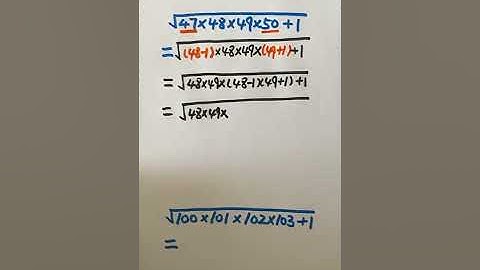 √47×48×49×50+1
=√(48-1)×48×49×(49+1)+1
=√48×49×(48-1)(49+1)+1
=√48×49×
√100×101×102×103+1
=